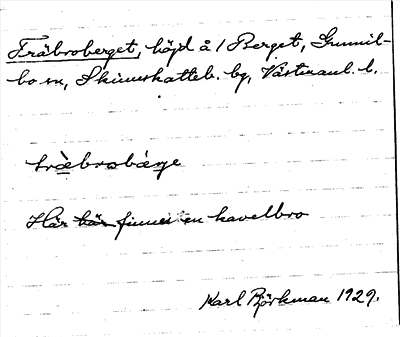 Träbroberget, höjd å / Berget, Gunnil-
bo sn, Skinnskatteb. bg, Västmanl. l.
trä̀brobärje
Här här finnes en kavelbro
Karl Björkman 1929.